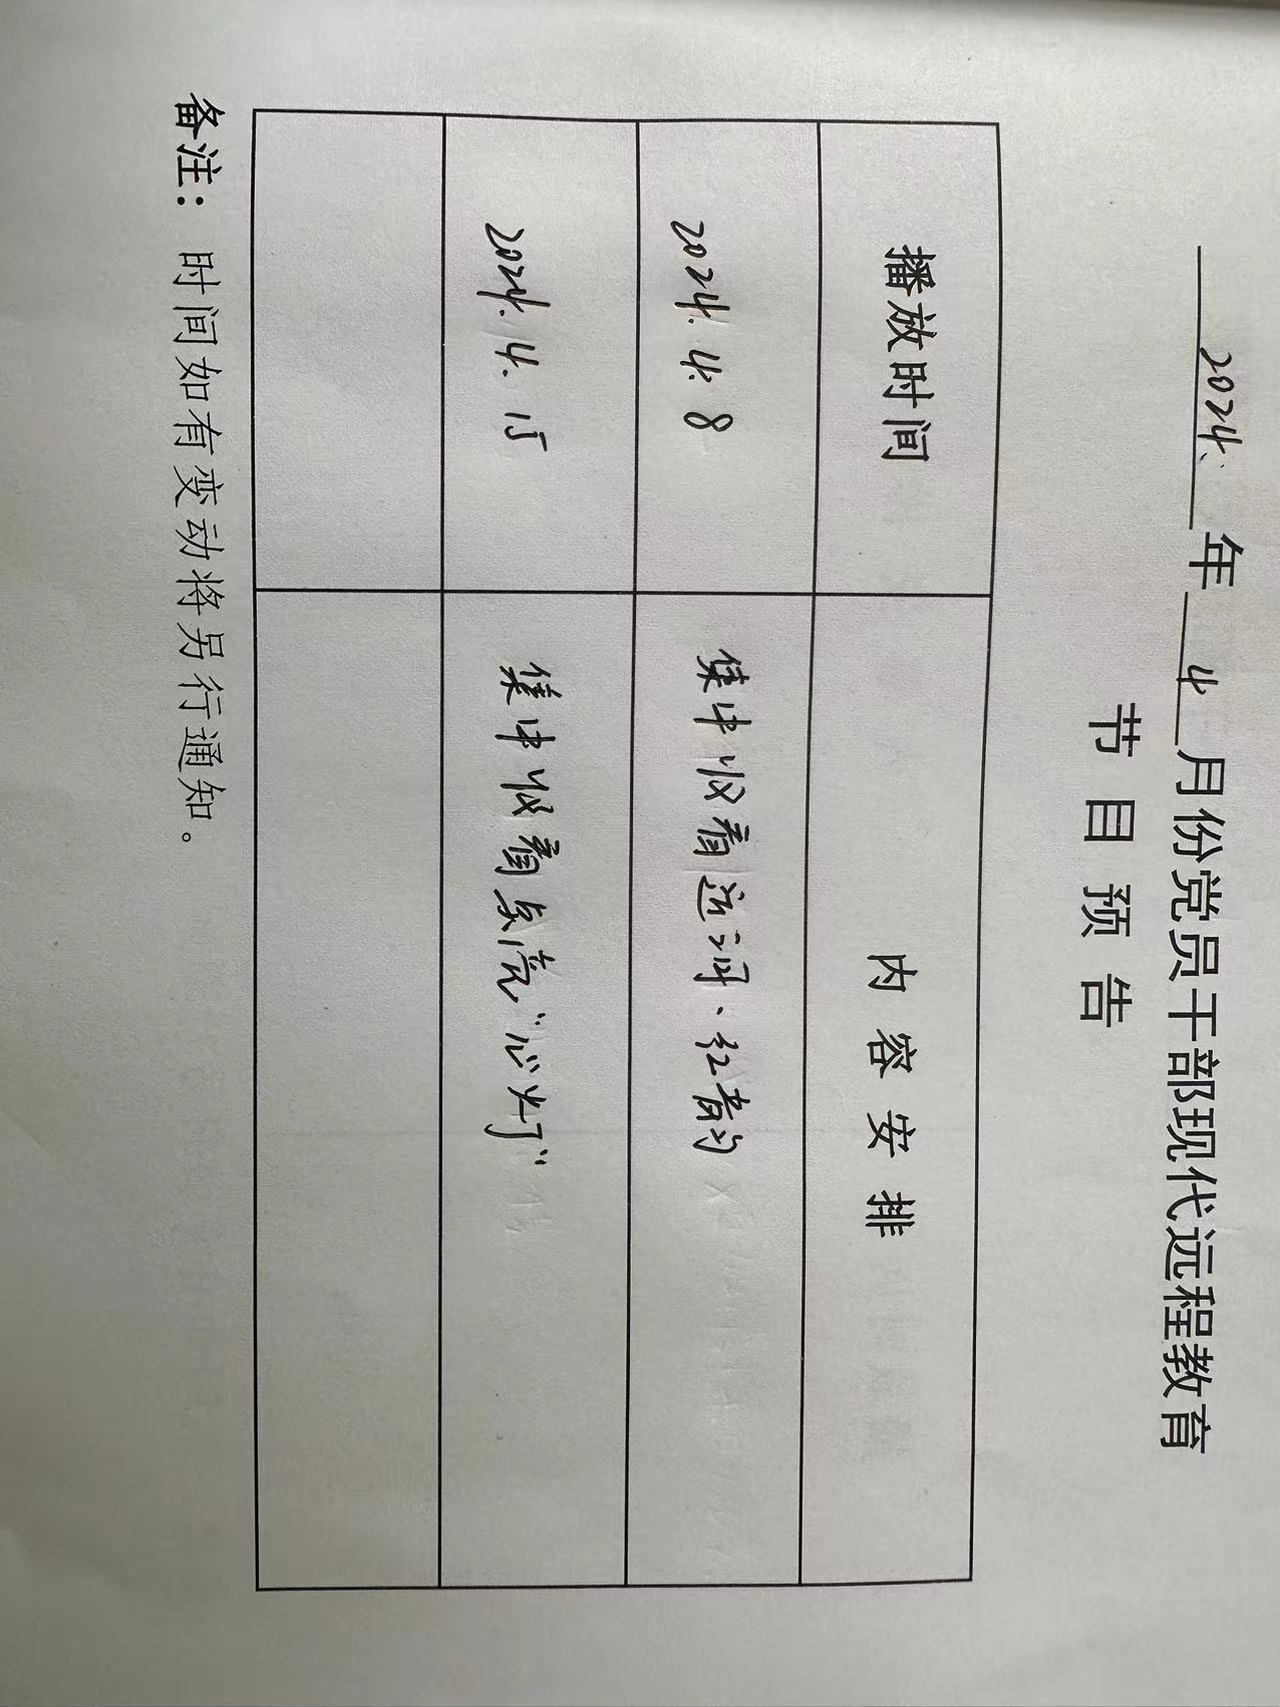 2024年4月份党员干部现代远程教育
节目预告
播放时间 内容安排
2024.4.8 集中收看 红
2024.4.15 集中收看点亮“心灯”
备注：时间如有变动将另行通知。